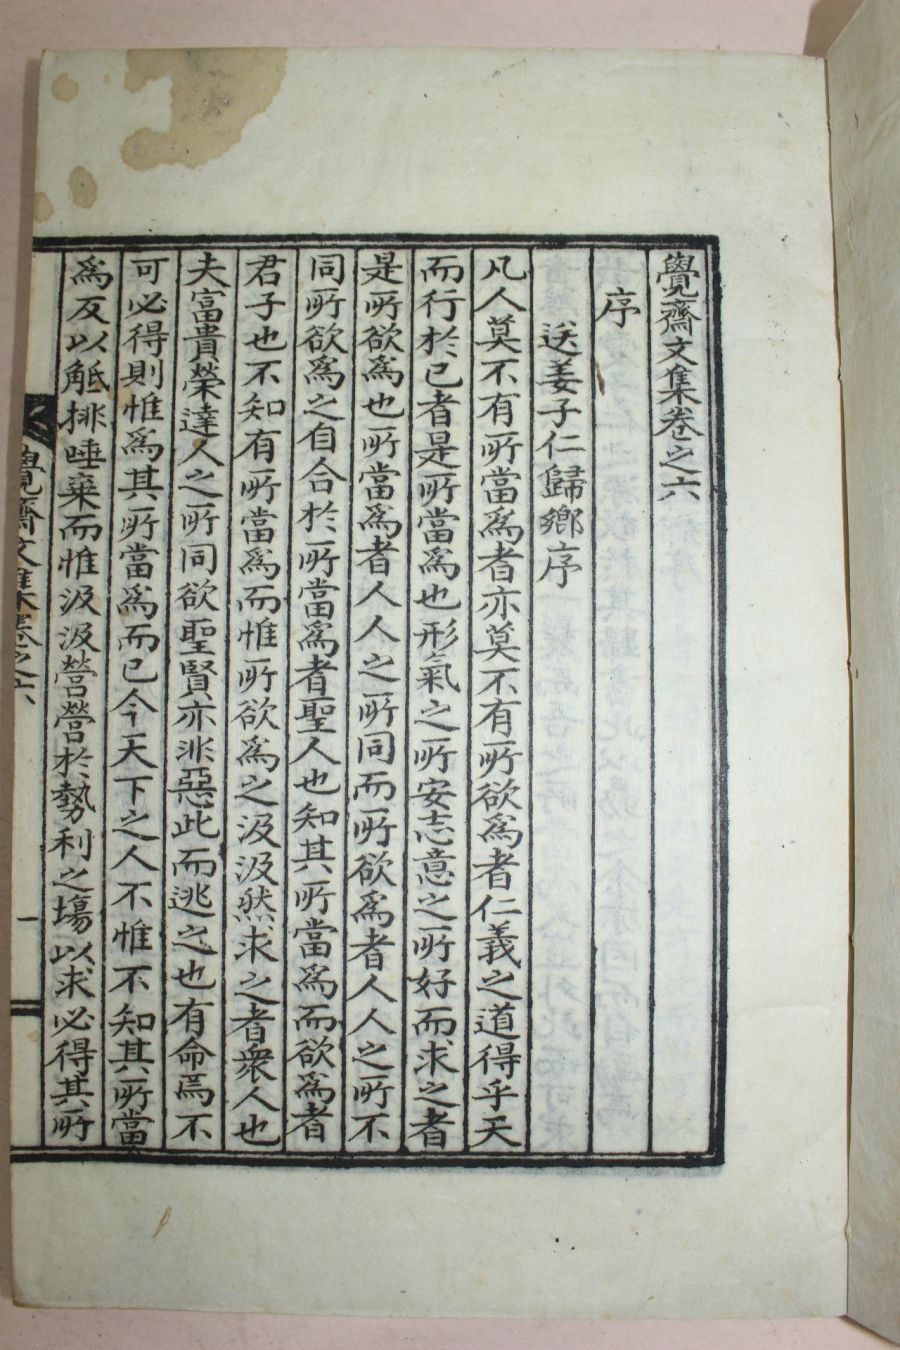 覺齋文集卷之六
序
送姜子仁歸鄉序
凡人莫不有所當爲者亦莫不有所欲爲者仁義之道得乎天
而行於已者是所當爲也形氣之所安志意之所好而求之者
是所欲爲也所當爲者人人之所同而所欲爲者人人之所不
同所欲爲之自合於所當爲者聖人也知其所當爲而欲爲者
君子也不知有所當爲而惟所欲爲之汲汲然求之者衆人也
夫富貴榮達人之所同欲聖賢亦非惡此而逃之也有命焉不
可必得則惟爲其所當爲而已今天下之人不惟不知其所當
爲反以觝排唾棄而惟汲汲營營於勢利之塲以求必得其所
覺齋文集卷之六
一